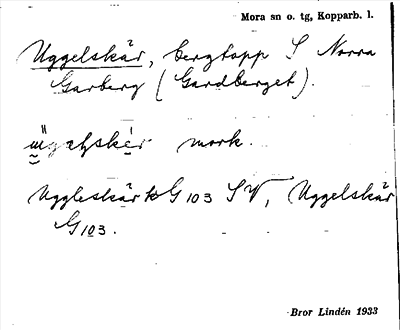 Mora sn o. tg, Kopparb. l.
Uggelskär, bergtopp S Norra
Garberg (Gardberget).
mark.
Uggleskär k G 103 SV, Uggelskär
G 103.
Bror Lindén 1933